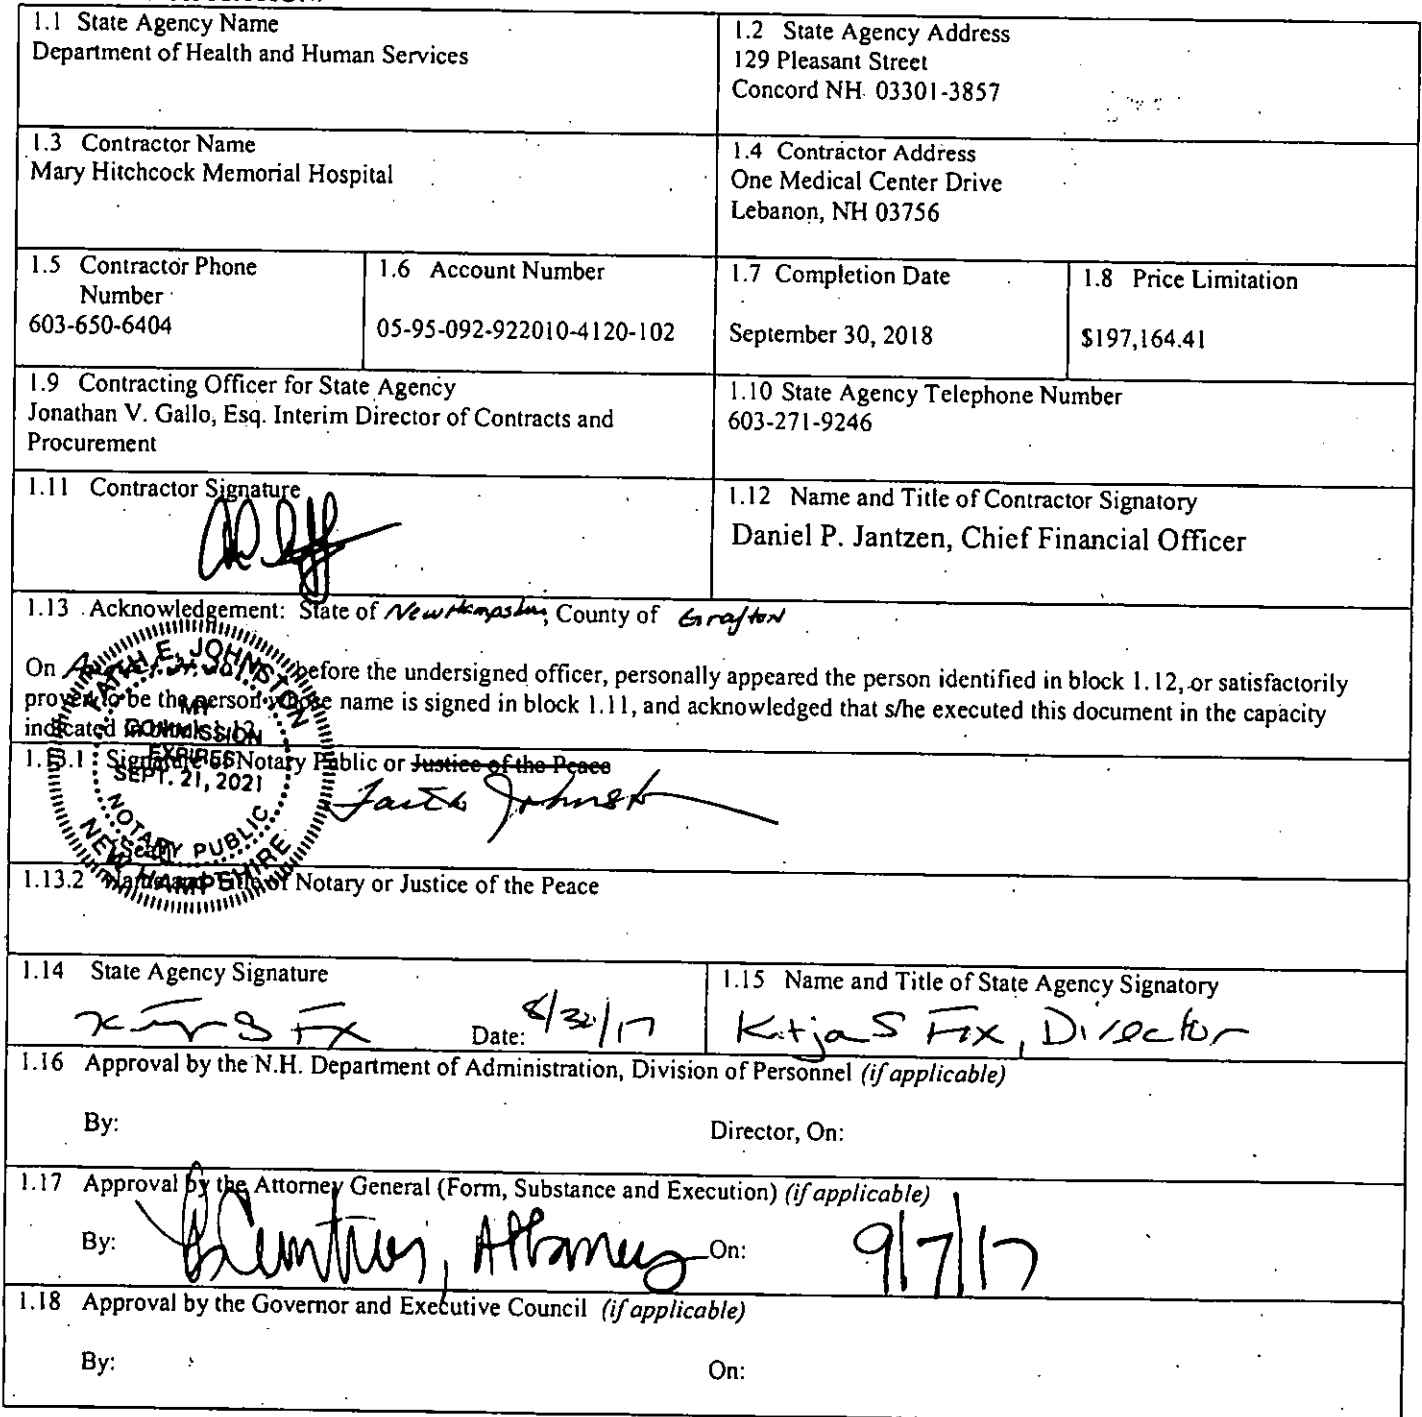 1.1 State Agency Name
Department of Health and Human Services
1.2 State Agency Address
129 Pleasant Street
Concord NH 03301-3857
1.3 Contractor Name
Mary Hitchcock Memorial Hospital
1.4 Contractor Address
One Medical Center Drive
Lebanon, NH 03756
1.5 Contractor Phone
Number
603-650-6404
1.6 Account Number
05-95-092-922010-4120-102
1.7 Completion Date
September 30, 2018
1.8 Price Limitation
$197,164.41
1.9 Contracting Officer for State Agency
Jonathan V. Gallo, Esq. Interim Director of Contracts and
Procurement
1.10 State Agency Telephone Number
603-271-9246
1.11 Contractor Signature
1.12 Name and Title of Contractor Signatory
Daniel P. Jantzen, Chief Financial Officer
1.13 Acknowledgement: State of New Hampshire, County of Grafton
On before the undersigned officer, personally appeared the person identified in block 1.12, or satisfactorily
proven to be the person whose name is signed in block 1.11, and acknowledged that s/he executed this document in the capacity
indicated in block 1.12.
1.13.1 Signature of Notary Public or Justice of the Peace
Faith Johnston
FAITH E. JOHNSTON
MY
COMMISSION
EXPIRES
SEPT. 21, 2021
NOTARY PUBLIC
NEW HAMPSHIRE
[Seal]
1.13.2 Name and Title of Notary or Justice of the Peace
1.14 State Agency Signature
Date: 8/30/17
1.15 Name and Title of State Agency Signatory
Katja S Fox, Director
1.16 Approval by the N.H. Department of Administration, Division of Personnel (if applicable)
By: Director, On:
1.17 Approval by the Attorney General (Form, Substance and Execution) (if applicable)
By: , Attorney On: 9/7/17
1.18 Approval by the Governor and Executive Council (if applicable)
By: On: